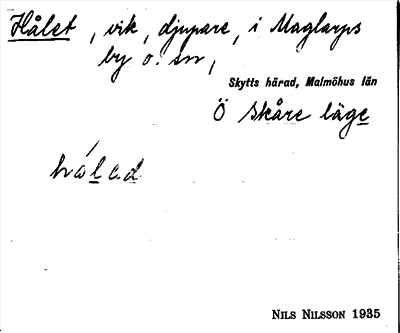 Hålet, vik, djupare, i Maglarps
by o. sn,
Skytts härad, Malmöhus län
Ö Skåre läge
NILS NILSSON 1935